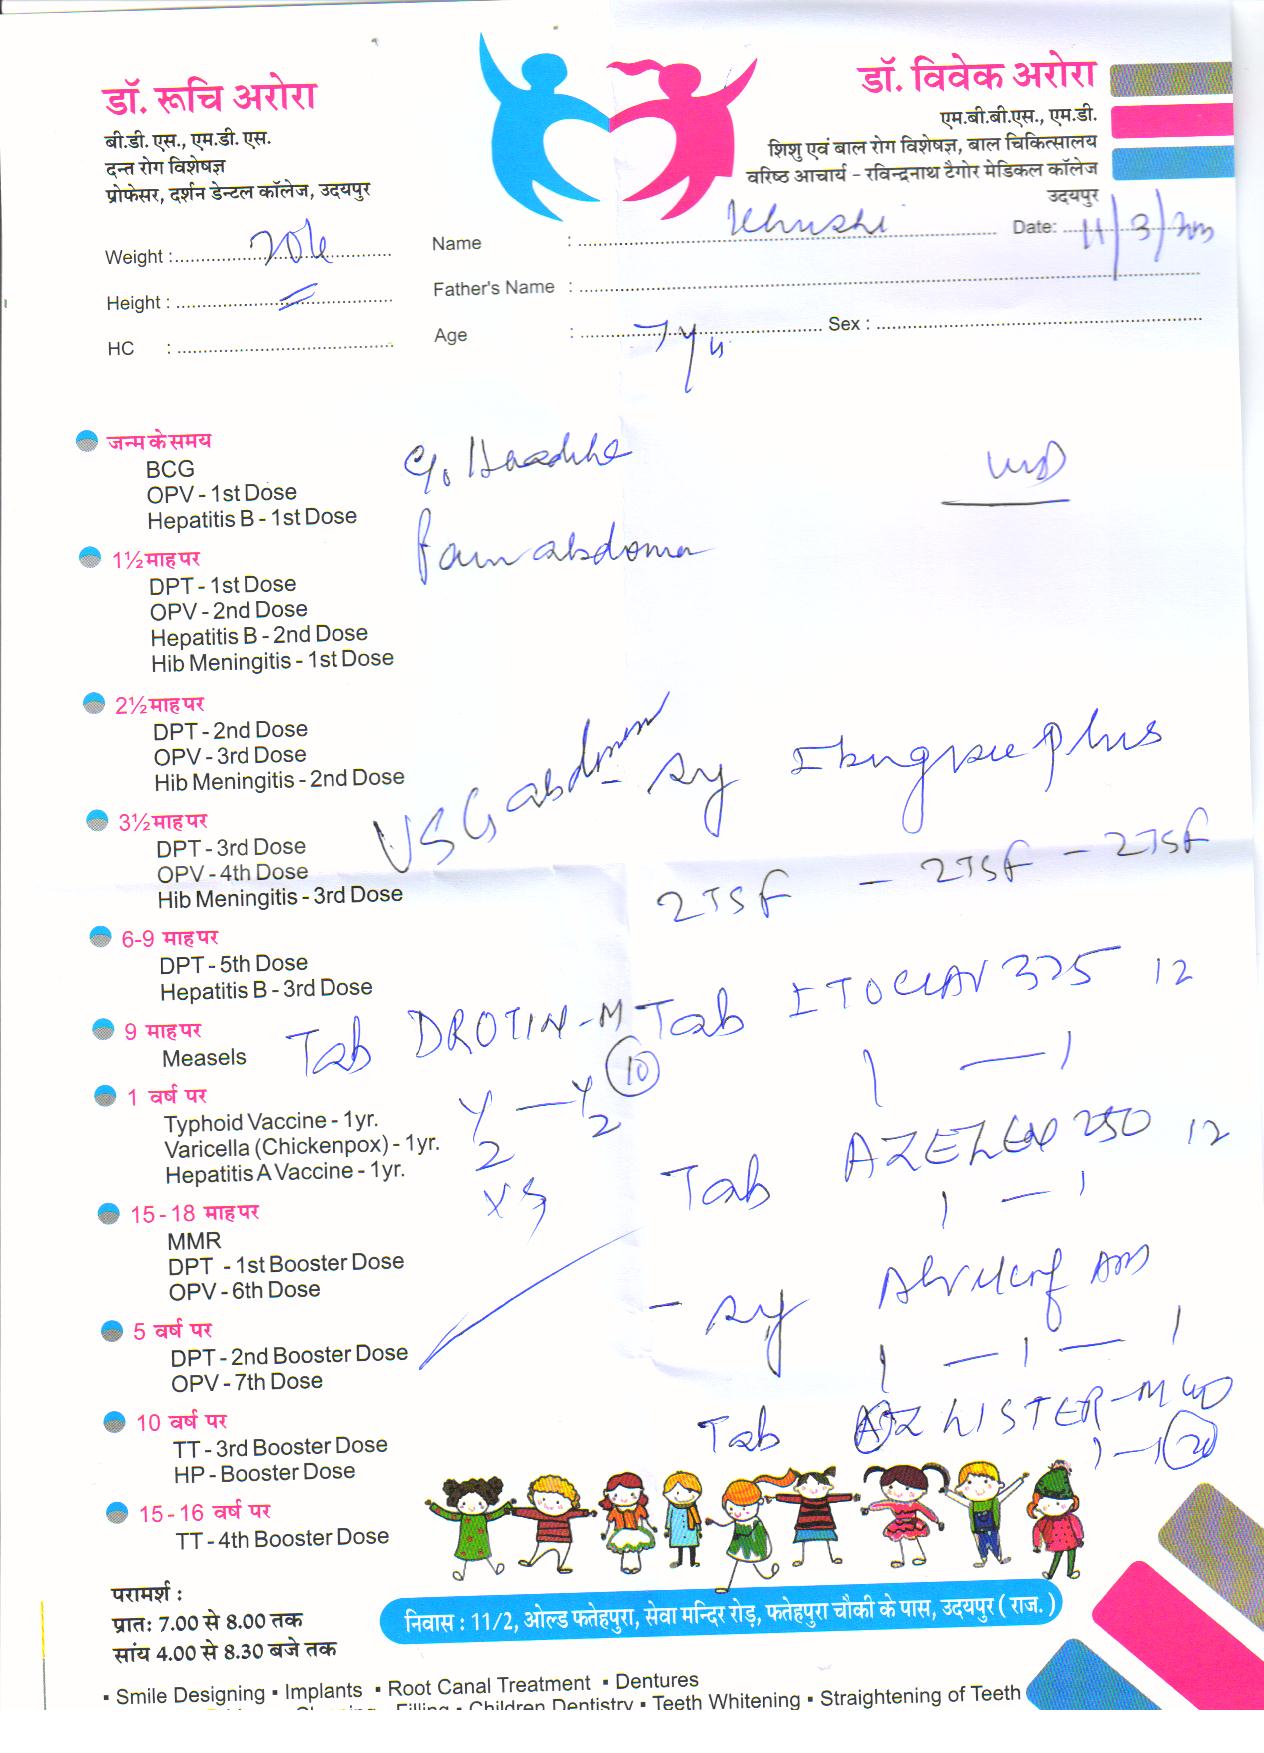 डॉ. रूचि अरोरा
बी.डी. एस., एम.डी. एस.
दन्त रोग विशेषज्ञ
प्रोफेसर, दर्शन डेन्टल कॉलेज, उदयपुर
डॉ. विवेक अरोरा
एम.बी.बी.एस., एम.डी.
शिशु एवं बाल रोग विशेषज्ञ, बाल चिकित्सालय
वरिष्ठ आचार्य - रविन्द्रनाथ टैगोर मेडिकल कॉलेज
उदयपुर
Weight :
Name : Khushi Date: 11/3/
Height :
Father's Name :
HC :
Age : 7 yrs Sex :
जन्म के समय
BCG
OPV - 1st Dose
Hepatitis B - 1st Dose
Pain abdomen
1½ माह पर
DPT - 1st Dose
OPV - 2nd Dose
Hepatitis B - 2nd Dose
Hib Meningitis - 1st Dose
2½ माह पर
DPT - 2nd Dose
OPV - 3rd Dose
Hib Meningitis - 2nd Dose
USG abdomen
Sy plus
3½ माह पर
DPT - 3rd Dose
OPV - 4th Dose
Hib Meningitis - 3rd Dose
2TSF - 2TSF - 2TSF
6-9 माह पर
DPT - 5th Dose
Hepatitis B - 3rd Dose
Tab ITOCLAV 375 12
1 - 1
9 माह पर
Measels
Tab DROTIN-M 10
1/2 - 1/2
1 वर्ष पर
Typhoid Vaccine - 1yr.
Varicella (Chickenpox) - 1yr.
Hepatitis A Vaccine - 1yr.
Tab 250 12
1 - 1
15 - 18 माह पर
MMR
DPT - 1st Booster Dose
OPV - 6th Dose
- Sy
1 - 1 - 1
5 वर्ष पर
DPT - 2nd Booster Dose
OPV - 7th Dose
10 वर्ष पर
TT - 3rd Booster Dose
HP - Booster Dose
Tab
15 - 16 वर्ष पर
TT - 4th Booster Dose
परामर्श :
प्रातः 7.00 से 8.00 तक
सांय 4.00 से 8.30 बजे तक
निवास : 11/2, ओल्ड फतेहपुरा, सेवा मन्दिर रोड़, फतेहपुरा चौकी के पास, उदयपुर ( राज. )
▪ Smile Designing ▪ Implants ▪ Root Canal Treatment ▪ Dentures
Filling ▪ Children Dentistry ▪ Teeth Whitening ▪ Straightening of Teeth